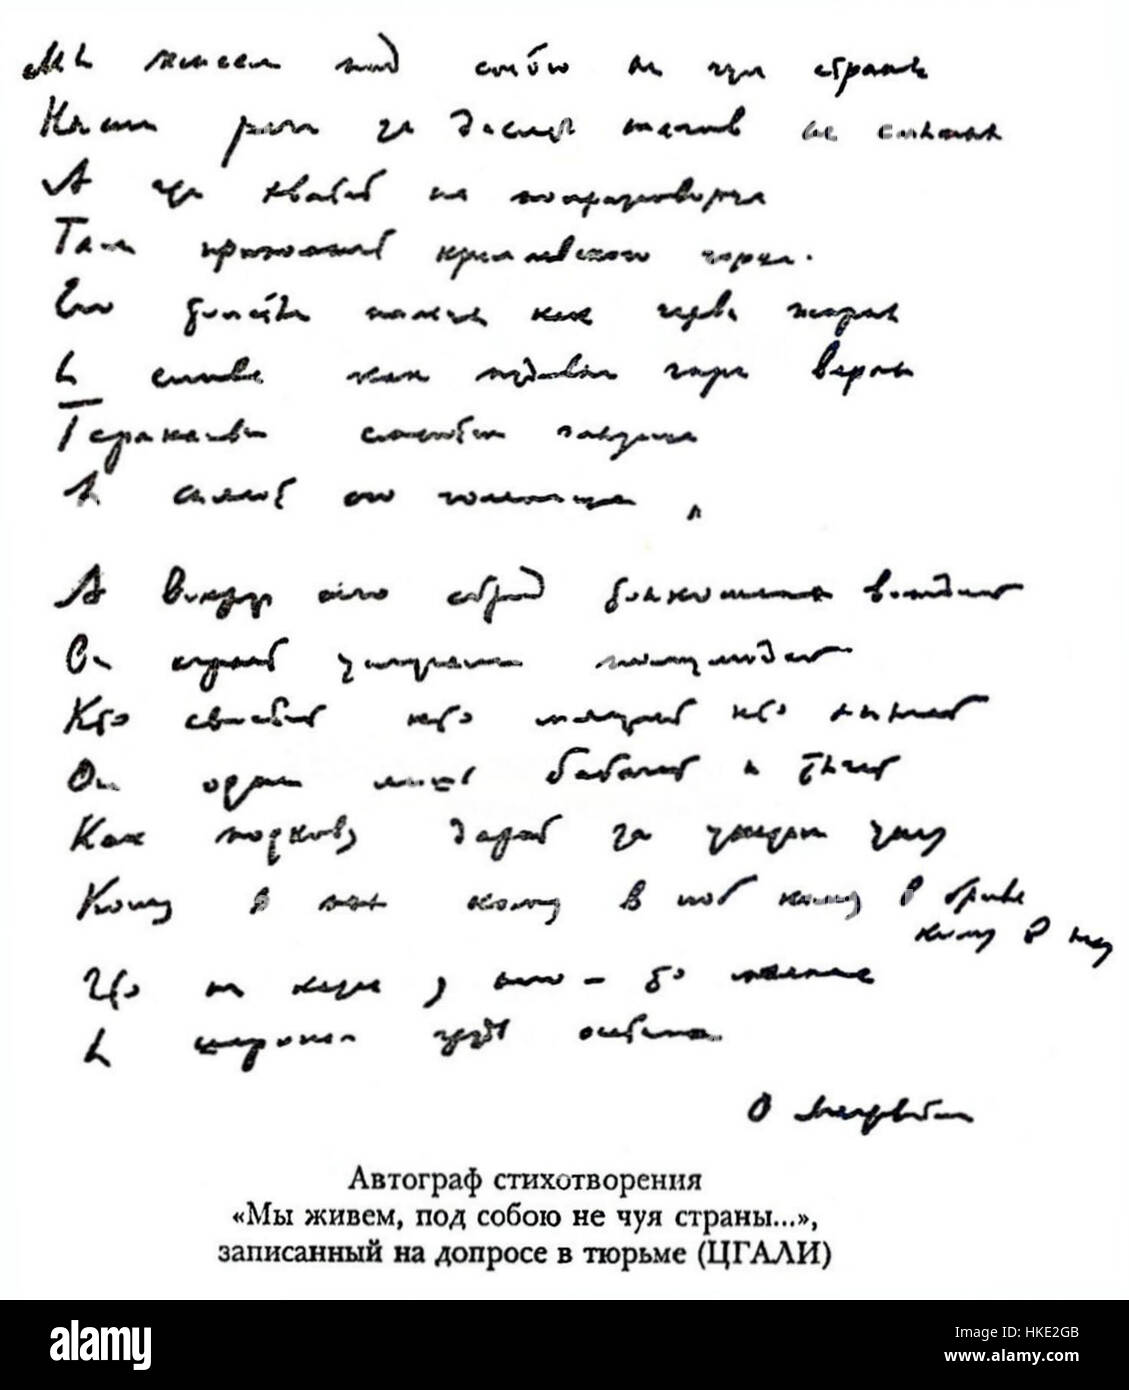 Мы живем под собою не чуя страны
Наши речи за десять шагов не слышны
А где хватит на полразговорца
Там припомнят кремлевского горца.
Его толстые пальцы как черви жирны
И слова как пудовые гири верны
Тараканьи смеются глазища
И сияют его голенища

А вокруг его сброд тонкошеих вождей
Он играет услугами полулюдей
Кто свистит кто мяучит кто хнычет
Он один лишь бабачит и тычет
Как подкову дарит за указом указ
Кому в пах кому в лоб кому в бровь
кому в глаз
Что ни казнь у него – то малина
И широкая грудь осетина
О Мандельштам
Автограф стихотворения
«Мы живем, под собою не чуя страны...»,
записанный на допросе в тюрьме (ЦГАЛИ)
alamy
Image ID: HKE2GB
www.alamy.com